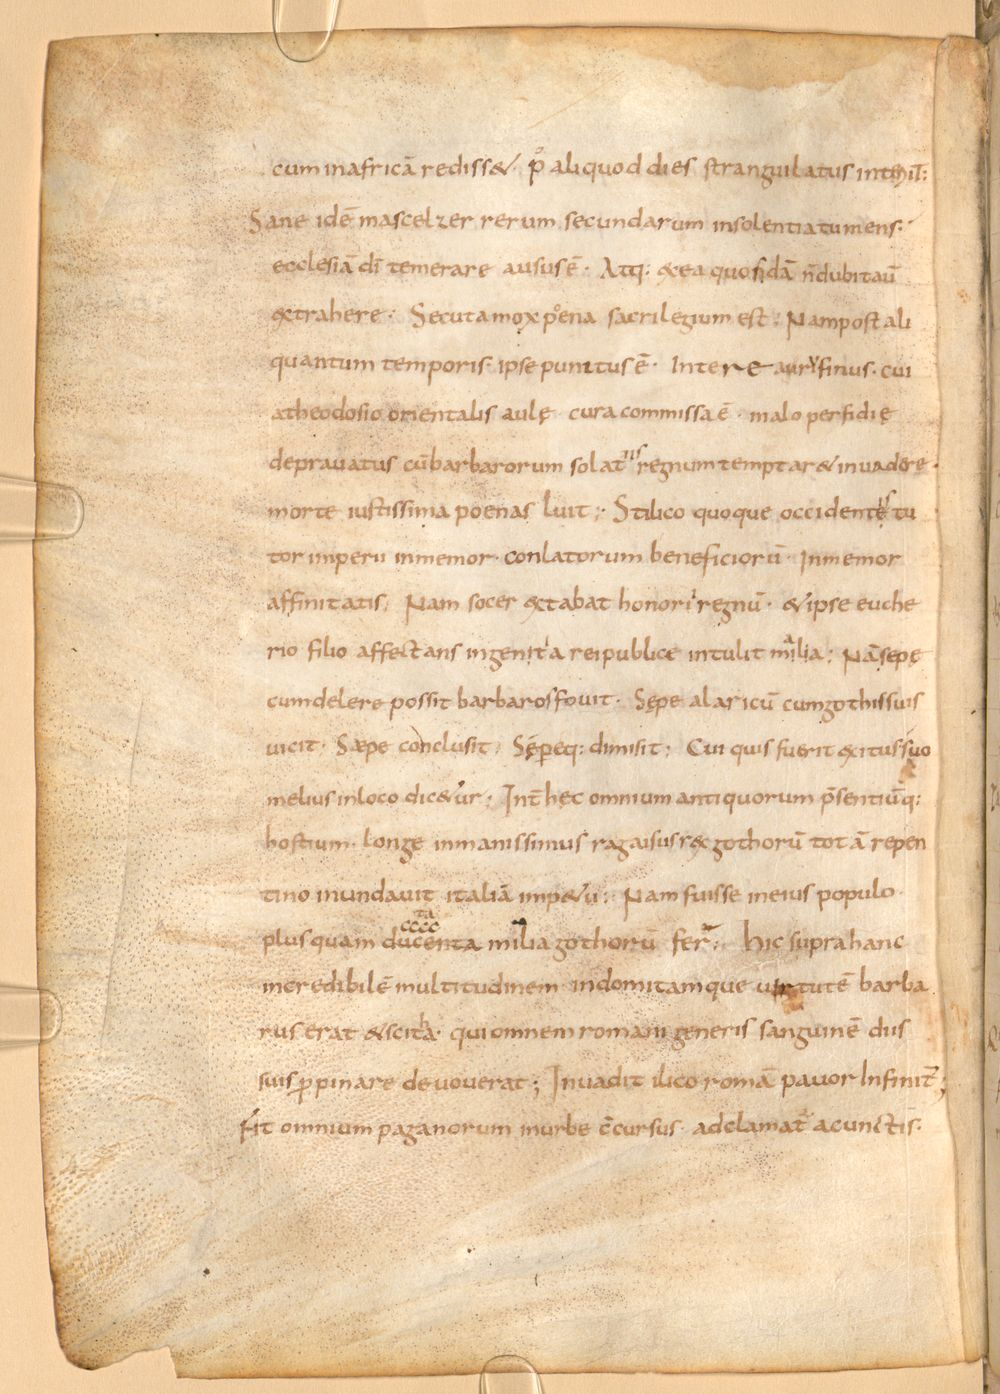 cum inafricā rediss&. p̊ aliquod dies strangulatus interiit:
Sane idē mascelzer rerum secundarum insolentia tumens.
ecclesiā dī temerare ausus ē. Atq: & ea quosdā n̄ dubitaū
&trahere. Secuta mox poena sacrilegium est; Nam post ali
quantum temporis ipse punitus ē. Intere auryfinus. cui
atheodosio orientalis aulę. cura commissa ē. malo perfidię
deprauatus cū barbarorum solatiis regnum temptar& inuadere.
morte iustissima poenas luit; Stilico quoque occidentis tu
tor imperii inmemor. conlatorum beneficiorū. Inmemor
affinitatis; Nam socer extabat honorii regnū. & ipse euche
rio filio affectans ingentia rei publice intulit mala; Nā sepę
cum delere possit barbaros fouit. Sępe alaricū cum gothis suis
uicit. Sæpe conclusit; Sępeq: dimisit; Cui quis fuerit exitus suo
melius in loco dic&ur; Int̄ hęc omnium antiquorum p̄sentiūq:
hostium. longe inmanissimus ragaisus rex gothorū totā repen
tino inundauit italiā imp&u; Nam fuisse in eius populo
plus quam ducenta milia gothorū fer̄; hic supra hanc
cccc ta
incredibilē multitudinem indomitamque uirtutē barba
rus erat & scitha. qui omnem romani generis sanguinē diis
suis ꝓpinare deuouerat; Inuadit ilico romā pauor Infinit̄;
Fit omnium paganorum in urbe c̄cursus. adclamat̄ a cunctis.